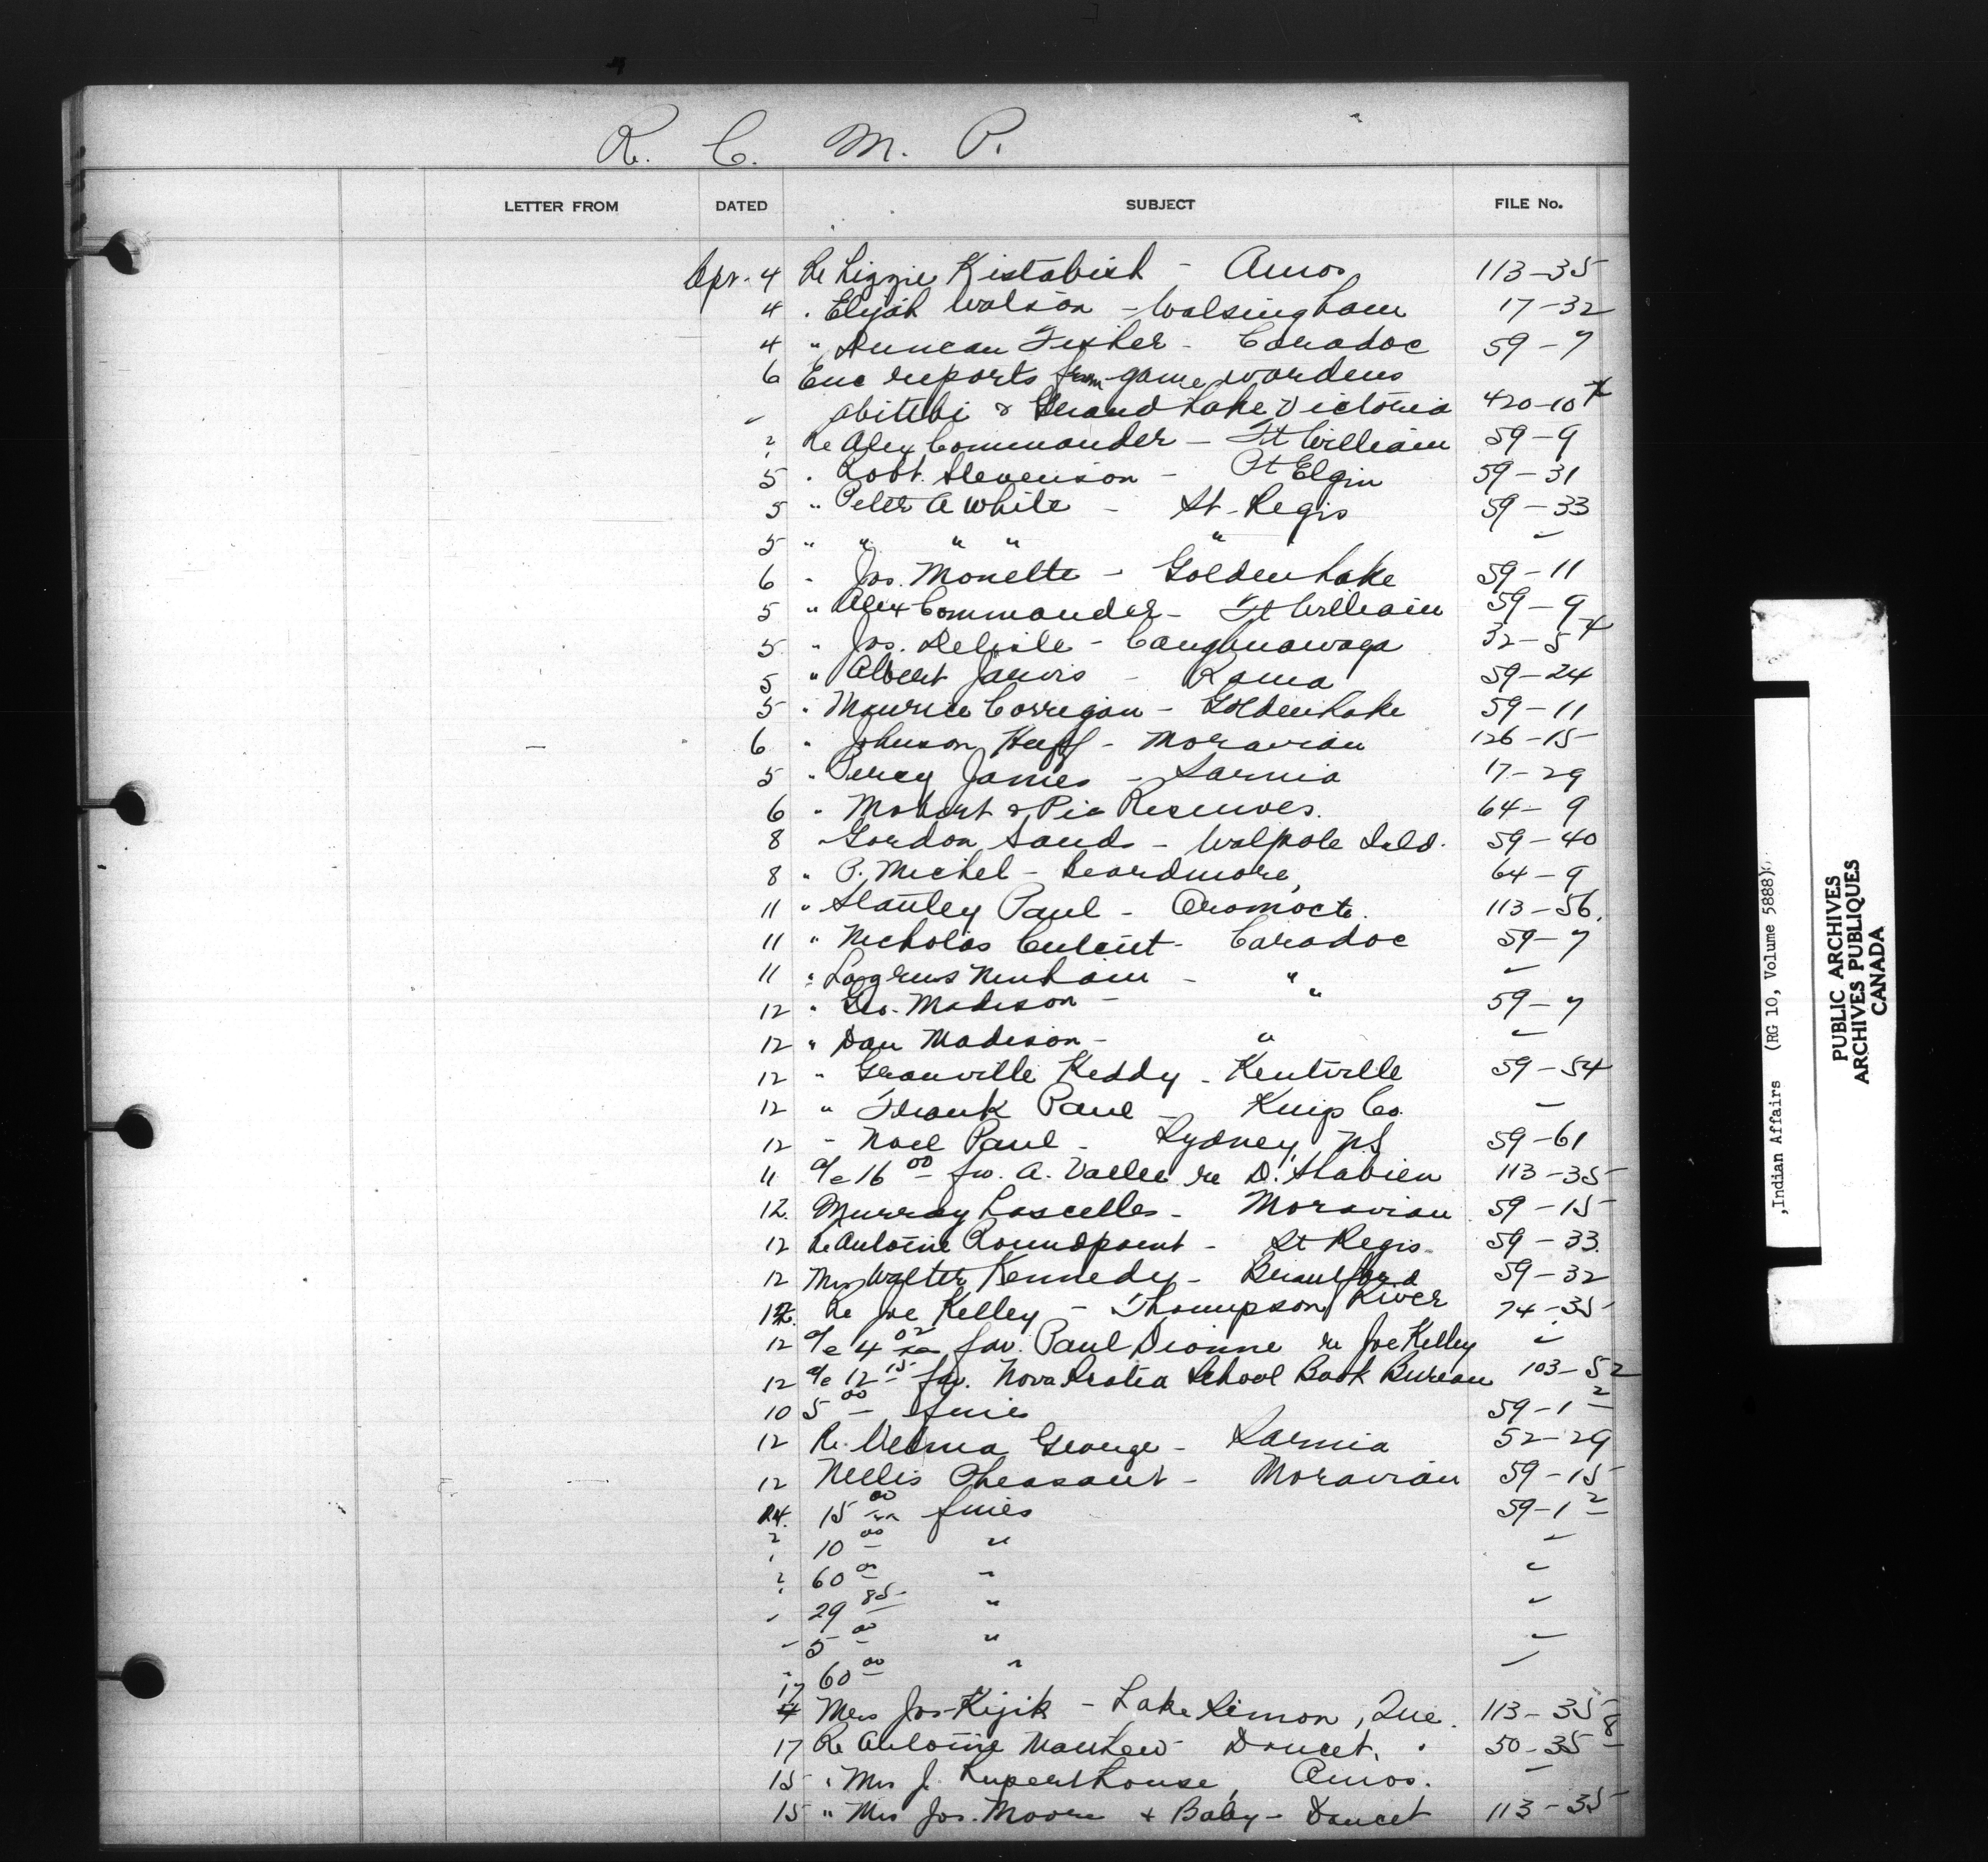 R. C. M. P.
LETTER FROM DATED SUBJECT FILE No.
Apr. 4 Re Lizzie Kistabish - Amos 113-35
4 " Elijah Watson - Walsingham 17-32
4 " Duncan Fisher - Caradoc 59-7
6 Enc reports from game wardens
Abitibi & Grand Lake Victoria 420-10
Re Alex Commander - Ft William 59-9
5 " Robt. Stevenson - Pt Elgin 59-31
5 " Peter A White - St. Regis 59-33
5 " " " " "
6 " Jos. Monette - Golden Lake 59-11
5 " Alex Commander - Ft William 59-9
5 " Jos. Delisle - Caughnawaga 32-5
5 " Albert Jarvis - Rama 59-24
5 " Maurice Corrigan - Golden Lake 59-11
6 " Johnson Huff - Moravian 126-15
5 " Percy James - Sarnia 17-29
6 " Mobert & Pic Reserves. 64-9
8 " Gordon Sands - Walpole Isld. 59-40
8 " P. Michel - Beardmore, 64-9
11 " Stanley Paul - Oromocto. 113-56.
11 " Nicholas - Caradoc 59-7
11 " Ninham - "
12 " Geo. Madison - " 59-7
12 " Dan Madison - "
12 " Granville Keddy - Kentville 59-54
12 " Frank Paul - Co.
12 " Noel Paul - Sydney, N.S 59-61
11 a/c 16 00 fav. A. Vallee re D. 113-35
12. Murray Lascelles - Moravian 59-15
12 Re Antoine Roundpoint - St Regis. 59-33.
12 Mrs Walter Kennedy - Brantford 59-32
12. Re Joe Kelley - Thompson River 74-35
12 a/c 4 02 fav. Paul Dionne re Joe Kelley
12 a/c 12 15 fav. Nova Scotia School Book Bureau 103-52
10 5 00 fines 59-1 2
12 Re. Velma George - Sarnia 52-29
12 Nellis Pheasant - Moravian 59-15
14. 15 00 fines 59-1 2
10 00 "
60 00 "
29 85 "
5 00 "
60 00 "
17 Mrs Jos Kijik - Lake Simon, Que. 113-35
17 Re Antoine Mathew Doucet, " 50-35 8
15 " Mrs J. Ruperthouse, Amos.
15 " Mrs Jos. Moore & Baby - Doucet 113-35
,Indian Affairs (RG 10, Volume 5888)
PUBLIC ARCHIVES
ARCHIVES PUBLIQUES
CANADA